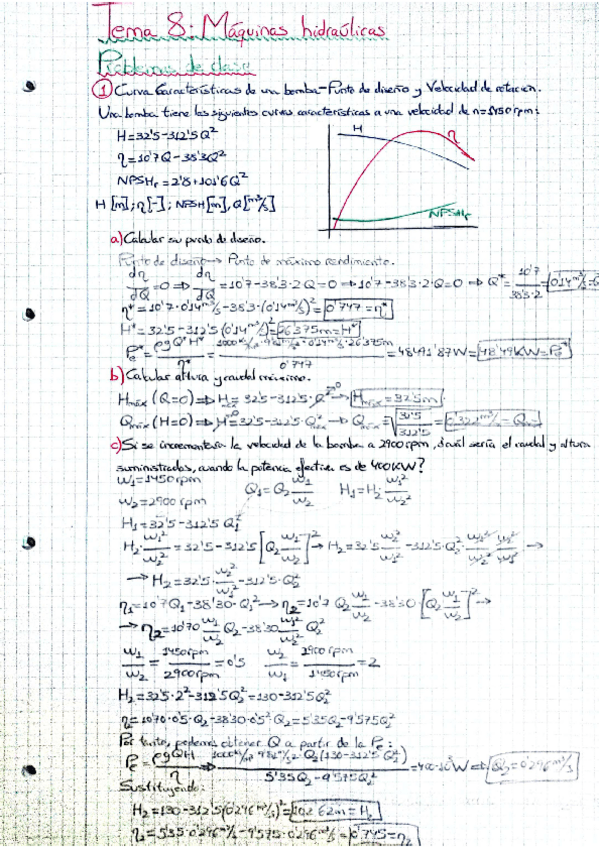 Tema 8: Máquinas hidraúlicas
Problemas de clase
① Curva Características de una bomba-Punto de diseño y Velocidad de rotación.
Una bomba tiene las siguientes curvas características a una velocidad de n=1450rpm:
H=32'5-312'5Q²
η=10'7Q-38'3Q²
NPSHr=2'8+101'6Q²
H [m]; η[-]; NPSH[m], Q[m³/s]
H
η
NPSHr
a) Calcular su punto de diseño.
Punto de diseño → Punto de máximo rendimiento.
dη/dQ=0 ⇒ dη/dQ=10'7-38'3·2Q=0 ⇒ 10'7-38'3·2·Q=0 ⇒ Q*=10'7/38'3·2=0'14m³/s
η*=10'7·0'14m³/s-38'3·(0'14m³/s)²=0'747=η*
H*=32'5-312'5(0'14m³/s)²=26'375m=H*
Pe*=ρgQ*H*/η*= /0'747=48491'87W=48'49KW=Pe*
b) Calcular altura y caudal máximo.
Hmáx(Q=0)⇒H=32'5-312'5·Q² ⇒ Hmáx=32'5m
Qmáx(H=0)⇒H=32'5-312'5·Q² ⇒ Qmáx=√(32'5/312'5)=
c) Si se incrementaría la velocidad de la bomba a 2900rpm, ¿cuál sería el caudal y altura
suministradas, cuando la potencia efectiva es de 400KW?
ω₁=1450rpm
ω₂=2900rpm
Q₁=Q₂ω₁/ω₂ H₁=H₂ω₁²/ω₂²
H₁=32'5-312'5Q₁²
H₂·ω₁²/ω₂²=32'5-312'5[Q₂ω₁/ω₂]² → H₂=32'5·ω₂²/ω₁²-312'5·Q₂²·ω₁²/ω₂²·ω₂²/ω₁² →
→ H₂=32'5·ω₂²/ω₁²-312'5·Q₂²
η₁=10'7Q₁-38'30·Q₁² → η₂=10'7Q₂ω₁/ω₂-38'30·[Q₂ω₁/ω₂]² →
→ η₂=10'70ω₁/ω₂Q₂-38'30ω₁²/ω₂²Q₂²
ω₁/ω₂=1450rpm/2900rpm=0'5 ω₂/ω₁=2900rpm/1450rpm=2
H₂=32'5·2²-312'5Q₂²=130-312'5Q₂²
η₂=10'70·0'5·Q₂-38'30·0'5²·Q₂=5'35Q₂-9'575Q₂²
Por tanto, podemos obtener Q a partir de la Pe:
Pe=ρgQH/η ⇒ Q₂(130-312'5Q₂²)/5'35Q₂-9'575Q₂²=400·10³W ⇒ Q₂=0'296m³/s
Sustituyendo:
H₂=130-312'5(0'296m³/s)²=102'62m=H₂
η₂=5'35·0'296m³/s-9'575·0'296m³/s=0'745=η₂